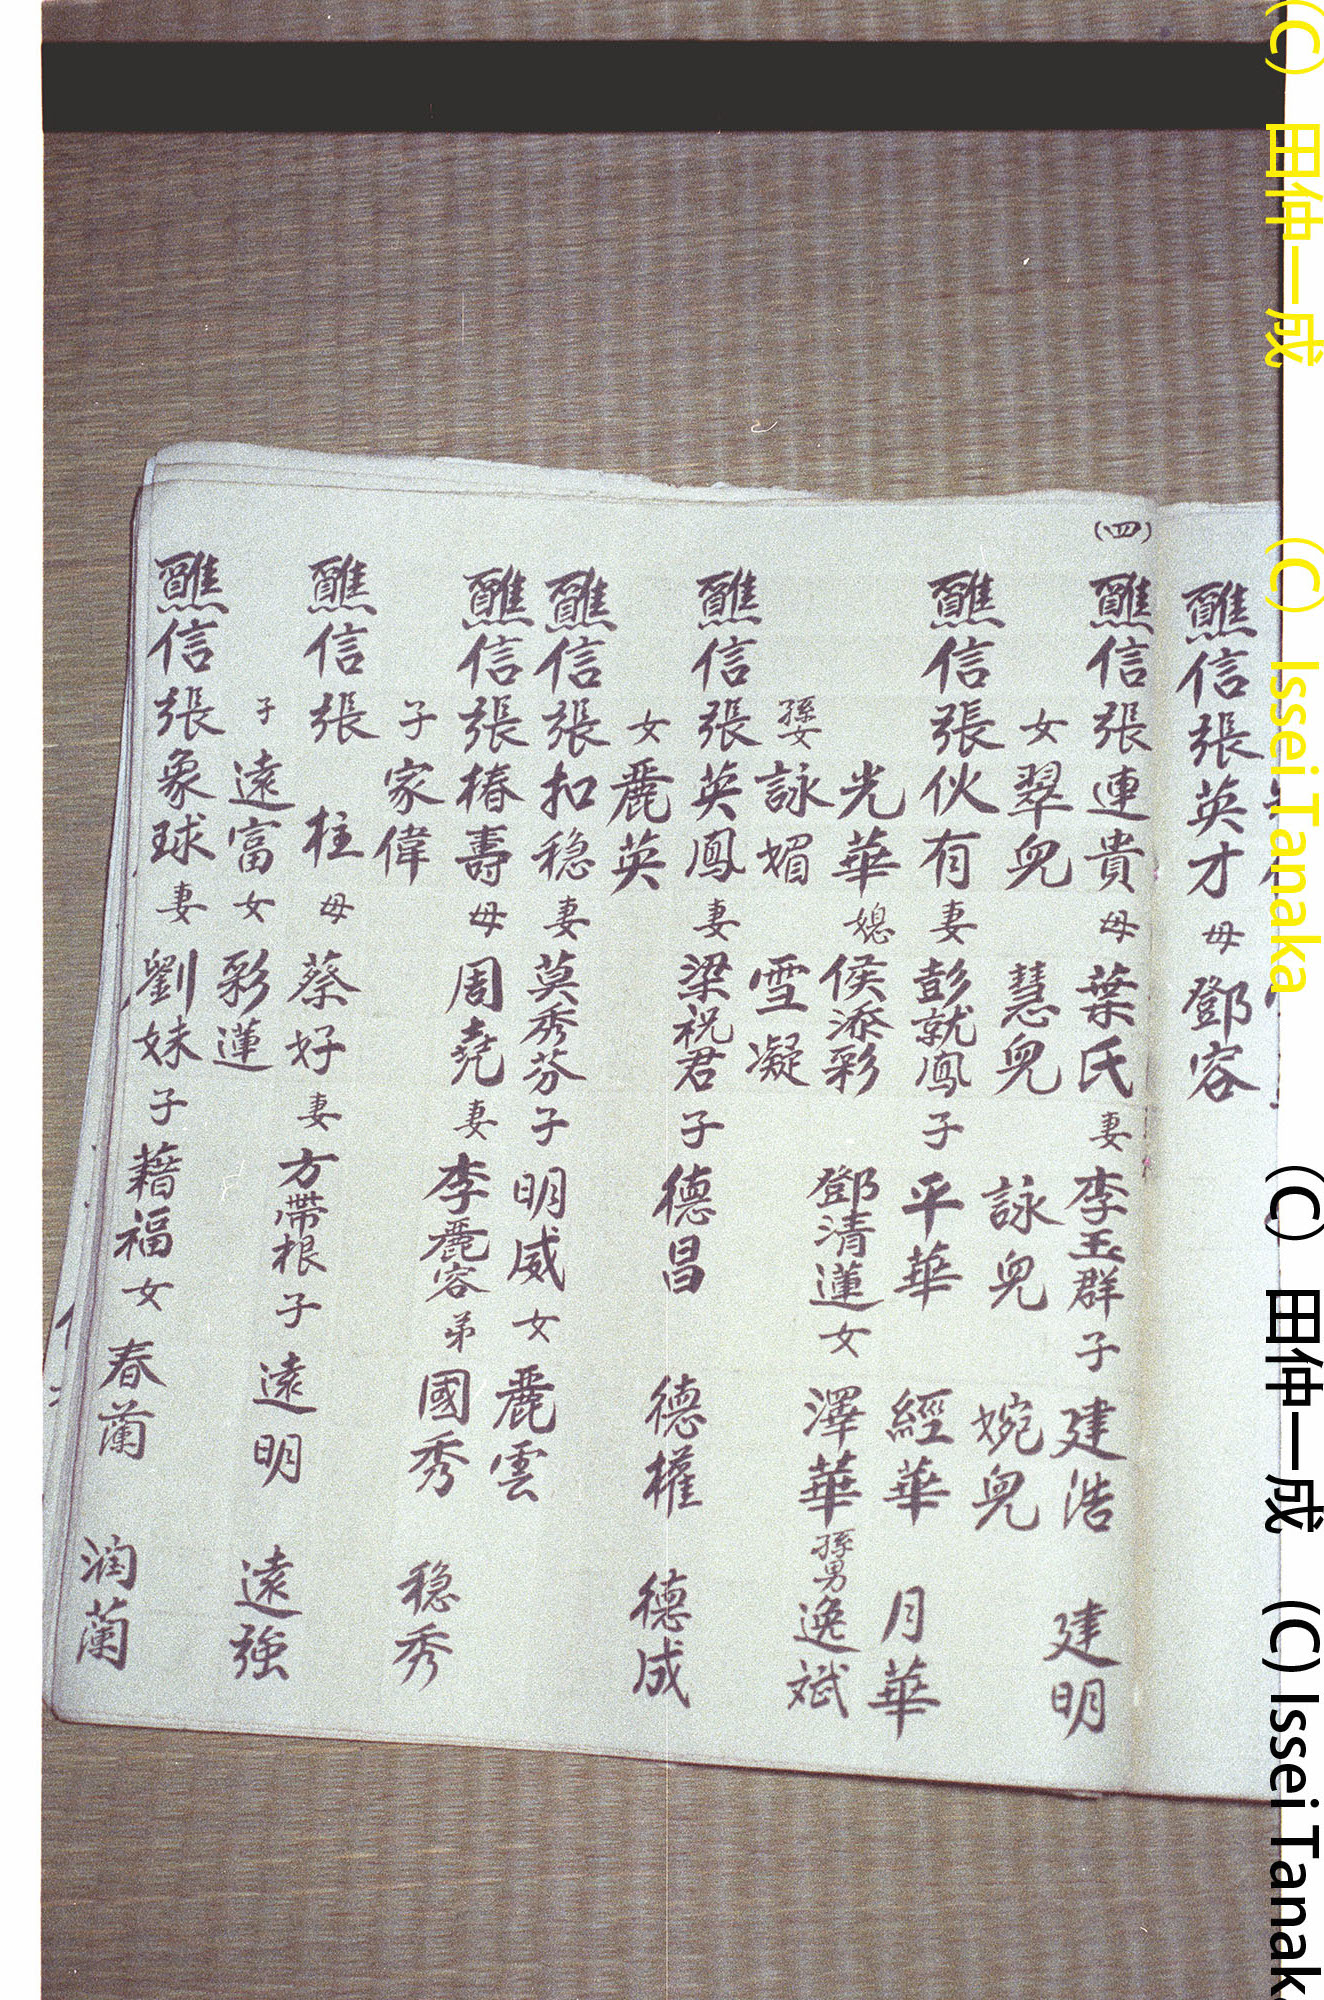 醮信張英才 母 鄧容
(四)
醮信張連貴 母 葉氏 妻 李玉群 子 建浩 建明
女 翠兒 慧兒 詠兒 婉兒
醮信張伙有 妻 彭就鳳 子 平華 經華 月華
光華 媳 侯添彩 鄧清蓮 女 澤華 孫男 逸斌
孫女 詠媚 雪凝
醮信張英鳳 妻 梁祝君 子 德昌 德權 德成
女 麗英
醮信張扣稳 妻 莫秀芬 子 明威 女 麗雲
醮信張椿壽 母 周堯 妻 李麗容 弟 國秀 稳秀
子 家偉
醮信張 柱 母 蔡好 妻 方帶根 子 遠明 遠強
子 遠富 女 彩蓮
醮信張象球 妻 劉妹 子 藉福 女 春蘭 润蘭
(C) 田仲一成 (C) Issei Tanaka (C) 田仲一成 (C) Issei Tanak